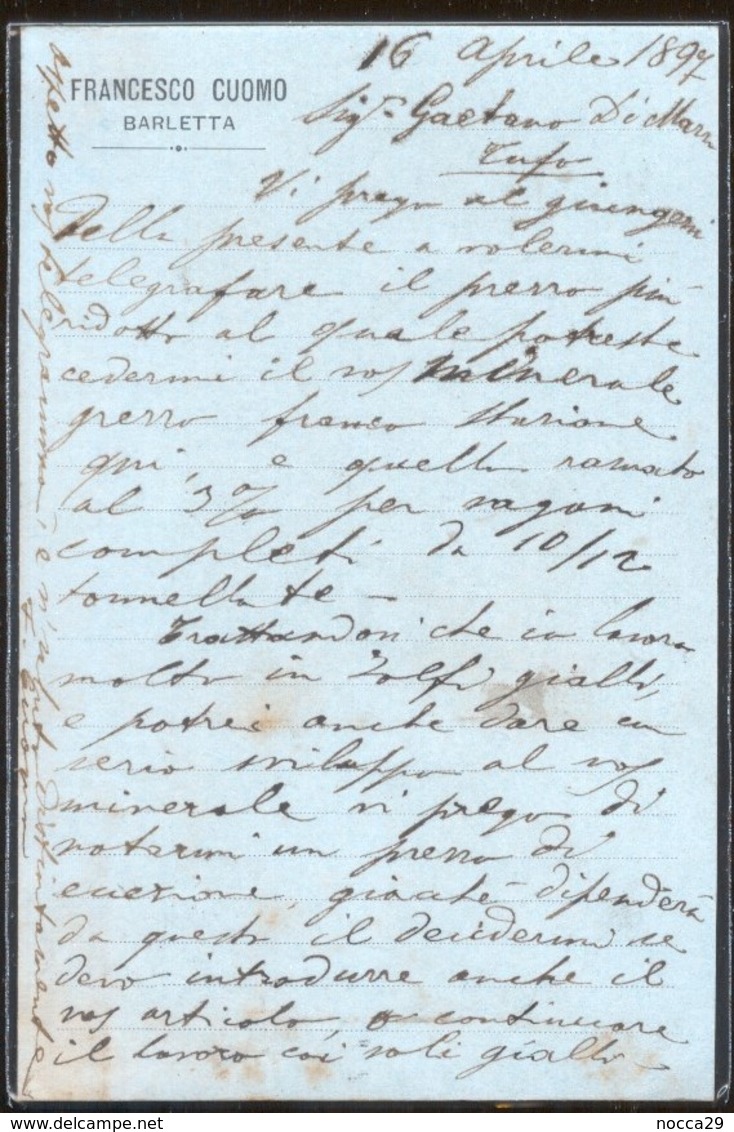 16 Aprile 1897
FRANCESCO CUOMO
BARLETTA
Sigr. Gaetano Di Marzo
Tufo
Vi prego al giungervi
della presente a volermi
telegrafare il prezzo più
ridotto al quale potreste
cedermi il vos/ minerale
grezzo franco stazione
qui, e quello ramato
al 3% per vagoni
completi da 10/12
tonnellate –
Trattandosi che io lavoro
molto in zolfi gialli,
e potrei anche dare un
serio sviluppo al vos/
minerale vi prego di
notarmi un prezzo di
eccezione, giacché dipenderà
da questo il decidermi se
devo introdurre anche il
vos/ articolo, o continuare
il lavoro coi soli gialli
Aspetto vos/ telegramma, e vi saluto distintamente
F. Cuomo
nocca29